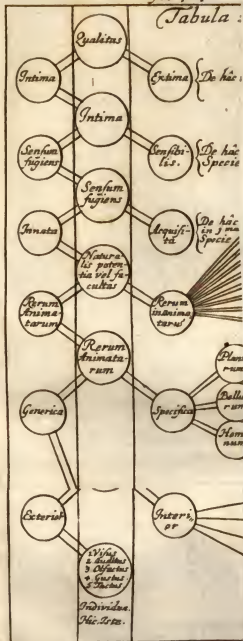 (Tabula
Qualitas
Intima
Extima
De hâc
Intima
Sensum
fugiens
Sensibi-
lis.
De hâc
Specie
Sensum
fugiens
Innata
Acquisi-
ta
De hâc
in 3 ma
Specie
Natura-
lis poten-
tia vel fa-
cultas
Rerum
Anima-
tarum
Rerum
inanima-
tarũ
Rerum
Animata-
rum
Plan
rum
Generica
Specifica
Bellu
rum
Hom
num
Exterior
Interi-
or
1. Visus
2. Auditus
3. Olfactus
4. Gustus
5. Tactus
Individua.
Hic. Iste.